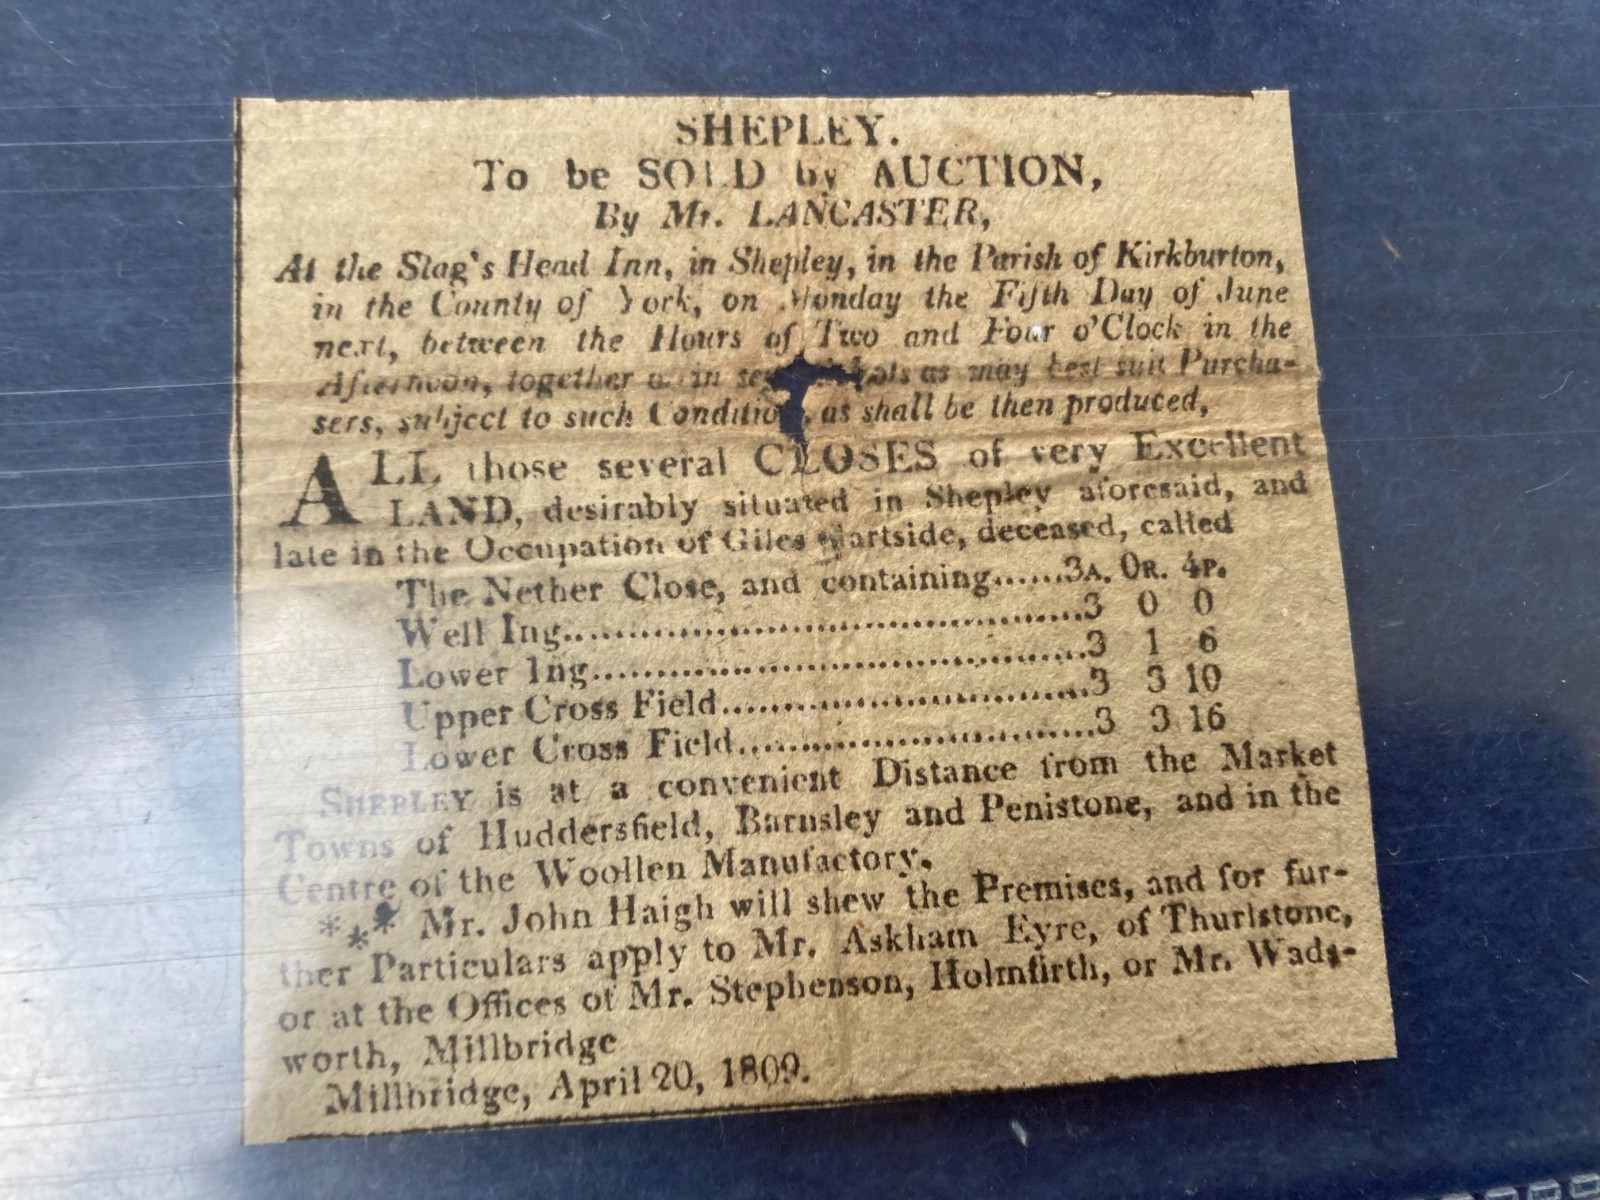 SHEPLEY.
To be SOLD by AUCTION,
By Mr. LANCASTER,
At the Stag's Head Inn, in Shepley, in the Parish of Kirkburton,
in the County of York, on Monday the Fifth Day of June
next, between the Hours of Two and Four o'Clock in the
Afternoon, together or in as may best suit Purcha-
sers, subject to such as shall be then produced,
ALL those several CLOSES of very Excellent
LAND, desirably situated in Shepley aforesaid, and
late in the Occupation of Giles Gartside, deceased, called
The Nether Close, and containing......3A. 0R. 4P.
Well Ing..........................................3 0 0
Lower Ing........................................3 1 6
Upper Cross Field..............................3 3 10
Lower Cross Field.............................3 3 16
SHEPLEY is at a convenient Distance from the Market
Towns of Huddersfield, Barnsley and Penistone, and in the
Centre of the Woollen Manufactory.
*** Mr. John Haigh will shew the Premises, and for fur-
ther Particulars apply to Mr. Askham Eyre, of Thurlstone,
or at the Offices of Mr. Stephenson, Holmfirth, or Mr. Wads-
worth, Millbridge
Millbridge, April 20, 1809.